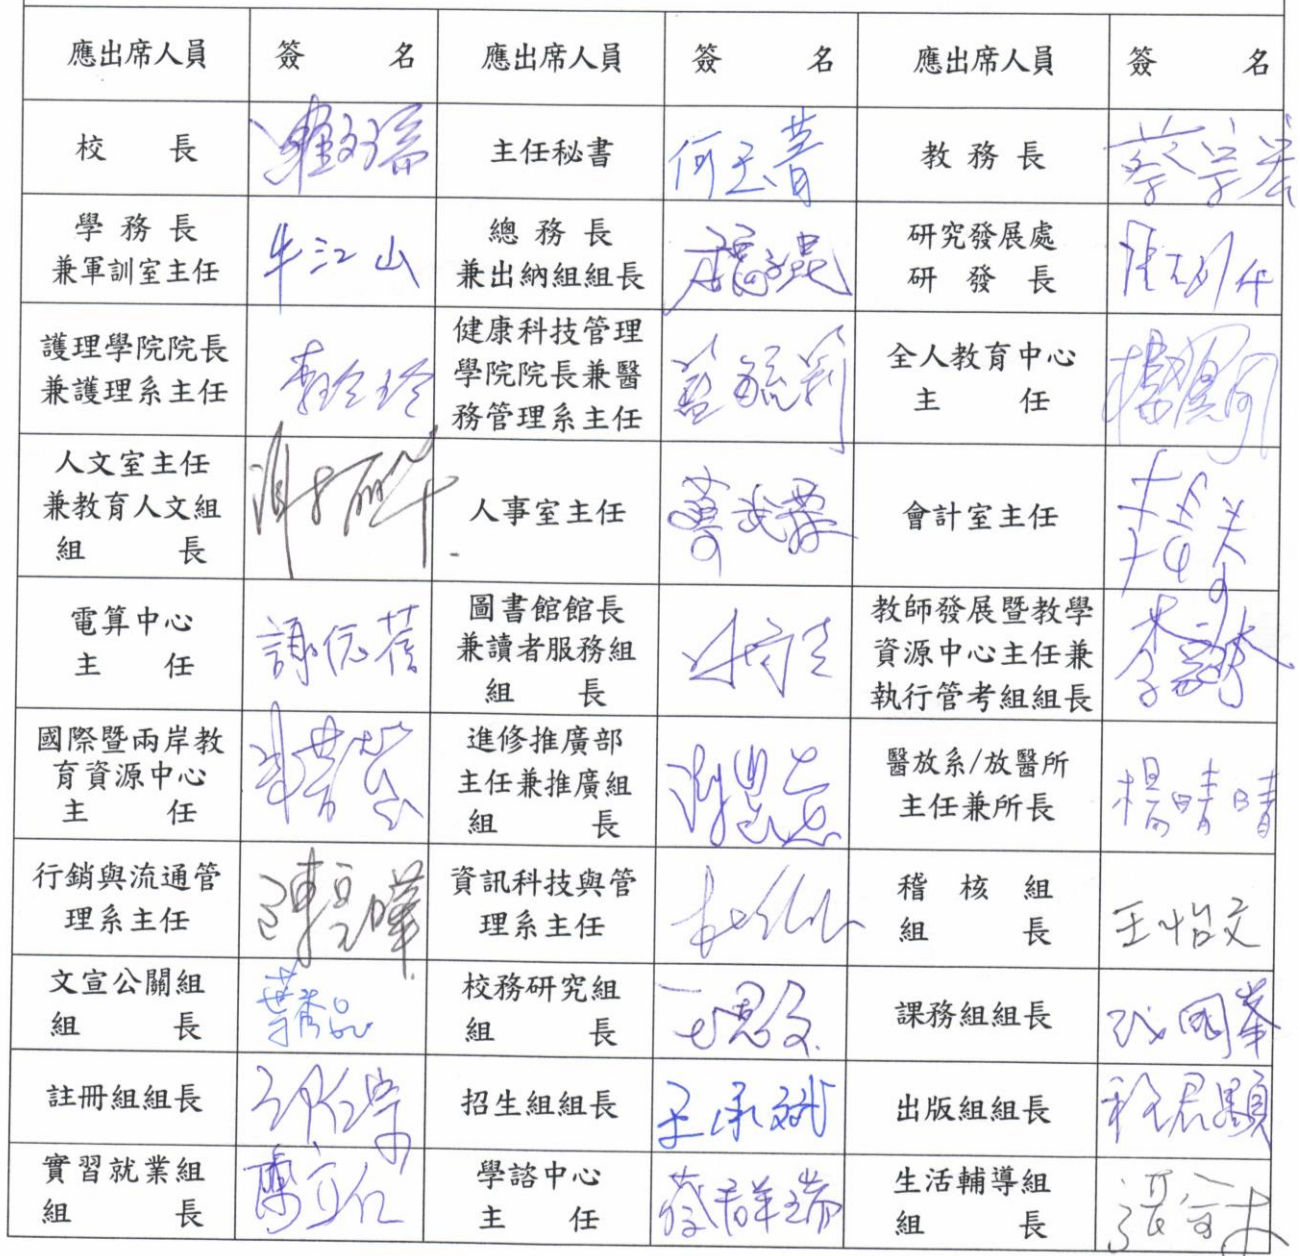 應出席人員 簽 名 應出席人員 簽 名 應出席人員 簽 名
校 長
羅文瑞
主任秘書
何玉菁
教務長
蔡宗宏
學務長
兼軍訓室主任
牛江山
總務長
兼出納組組長
研究發展處
研發長
護理學院院長
兼護理系主任
李玲玲
健康科技管理
學院院長兼醫
務管理系主任
藍毓莉
全人教育中心
主 任
人文室主任
兼教育人文組
組 長
謝麗華
人事室主任
會計室主任
電算中心
主 任
圖書館館長
兼讀者服務組
組 長
教師發展暨教學
資源中心主任兼
執行管考組組長
國際暨兩岸教
育資源中心
主 任
進修推廣部
主任兼推廣組
組 長
醫放系/放醫所
主任兼所長
楊晴晴
行銷與流通管
理系主任
陳皇曄
資訊科技與管
理系主任
稽 核 組
組 長
王怡文
文宣公關組
組 長
葉秀品
校務研究組
組 長
課務組組長
戴國峯
註冊組組長
招生組組長
王承斌
出版組組長
程君顒
實習就業組
組 長
學諮中心
主 任
蔡群瑞
生活輔導組
組 長